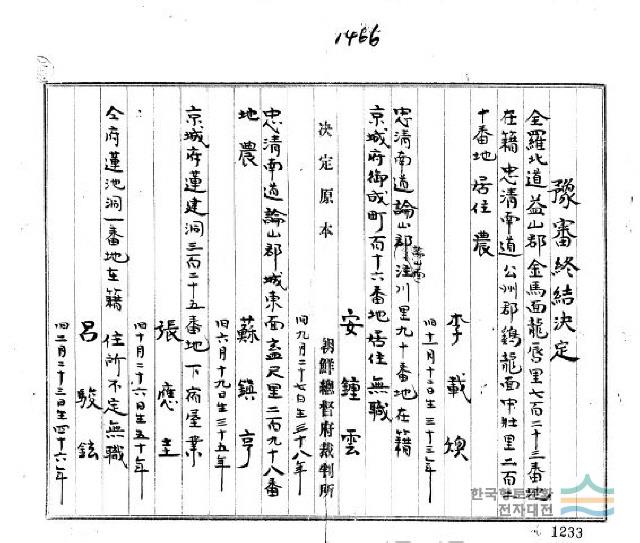 1466
豫審終結決定
全羅北道益山郡金馬面龍唇里七百二十三番地
在籍 忠清南道公州郡鷄龍面中壯里二百
十番地 居住 農
李載煥
旧十一月十二日生三十三年
忠清南道論山郡論山面注川里九十番地在籍
京城府御成町百十六番地居住 無職
安鍾雲
旧九月二十七日生三十八年
決定原本
朝鮮總督府裁判所
忠清南道論山郡城東面盖尺里二百九十八番
地 農
蘇鎭亨
旧六月十九日生三十五年
京城府蓮建洞三百二十五番地 下宿屋業
張應圭
旧十月二十六日生五十年
仝府蓮池洞一番地在籍 住所不定無職
呂駿鉉
旧二月二十三日生四十六年
한국학토대학
전자대전
1233